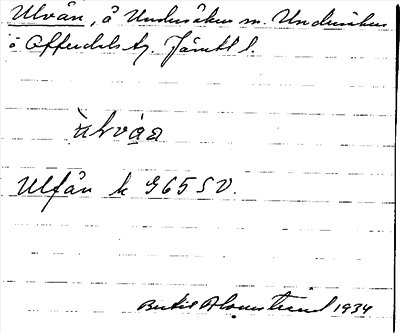 Ulvån, å Undersåkers sn. Undersåkers
o Offerdals tg. Jämtl l.
ùlvåa
Ulfån k G65 SV.
Bertil Blomstrand 1934